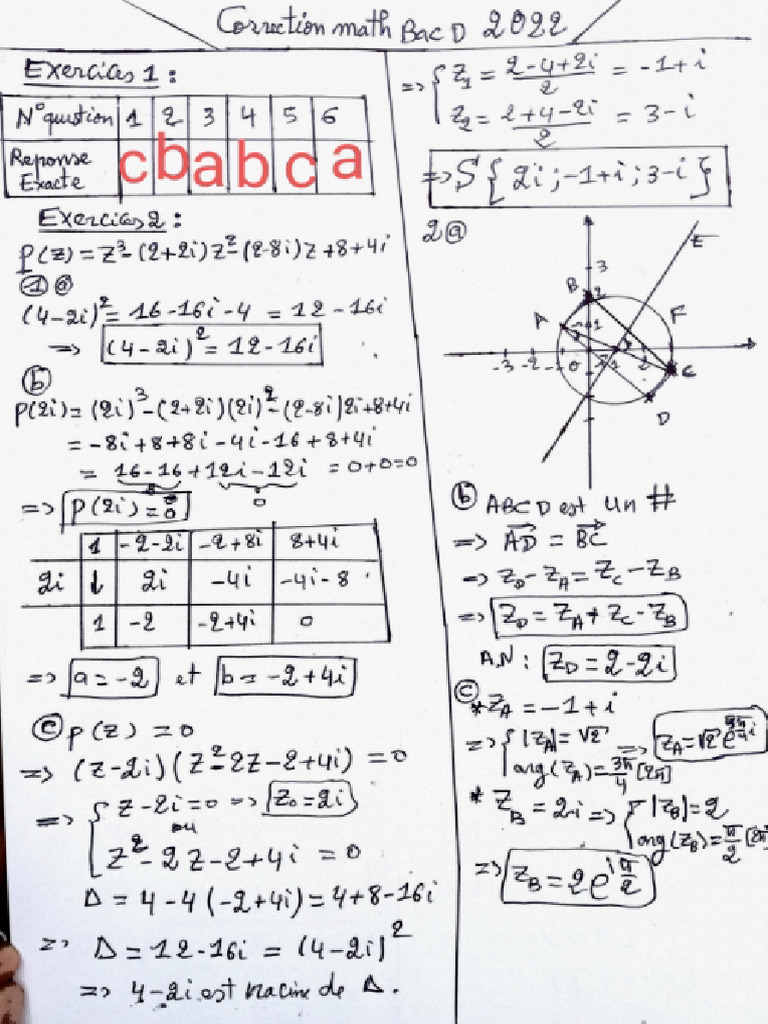 Correction math Bac D 2022
Exercice 1 :
N° question 1 2 3 4 5 6
Reponse Exacte c b a b c a
Exercice 2 :
P(z) = z³-(2+2i)z²-(2-8i)z+8+4i
① ⓐ
(4-2i)² = 16-16i-4 = 12-16i
=> (4-2i)² = 12-16i
ⓑ
P(2i) = (2i)³-(2+2i)(2i)²-(2-8i)2i+8+4i
= -8i+8+8i-4i-16+8+4i
= 16-16+12i-12i = 0+0=0
0 0
=> P(2i) = 0
1 -2-2i -2+8i 8+4i
2i ↓ 2i -4i -4i-8
1 -2 -2+4i 0
=> a = -2 et b = -2+4i
ⓒ P(z) = 0
=> (z-2i)(z²-2z-2+4i) = 0
=> { z-2i=0 => z₀=2i
ou
z²-2z-2+4i = 0
Δ = 4-4(-2+4i) = 4+8-16i
=> Δ = 12-16i = (4-2i)²
=> 4-2i est racine de Δ.
=> { z₁ = (2-4+2i)/2 = -1+i
z₂ = (2+4-2i)/2 = 3-i
=> S{2i ; -1+i ; 3-i}
2ⓐ
E
3
B 2
A 1 F
-3 -2 -1 0 1 2 C
D
ⓑ ABCD est un #
=> AD⃗ = BC⃗
=> Z_D-Z_A = Z_C-Z_B
=> Z_D = Z_A+Z_C-Z_B
A.N : Z_D = 2-2i
ⓒ *Z_A = -1+i
=> { |Z_A| = √2 => Z_A = √2 e^(i3π/4)
arg(Z_A) = 3π/4 [2π]
* Z_B = 2i => { |Z_B| = 2
arg(Z_B) = π/2 [2π]
=> Z_B = 2e^(iπ/2)